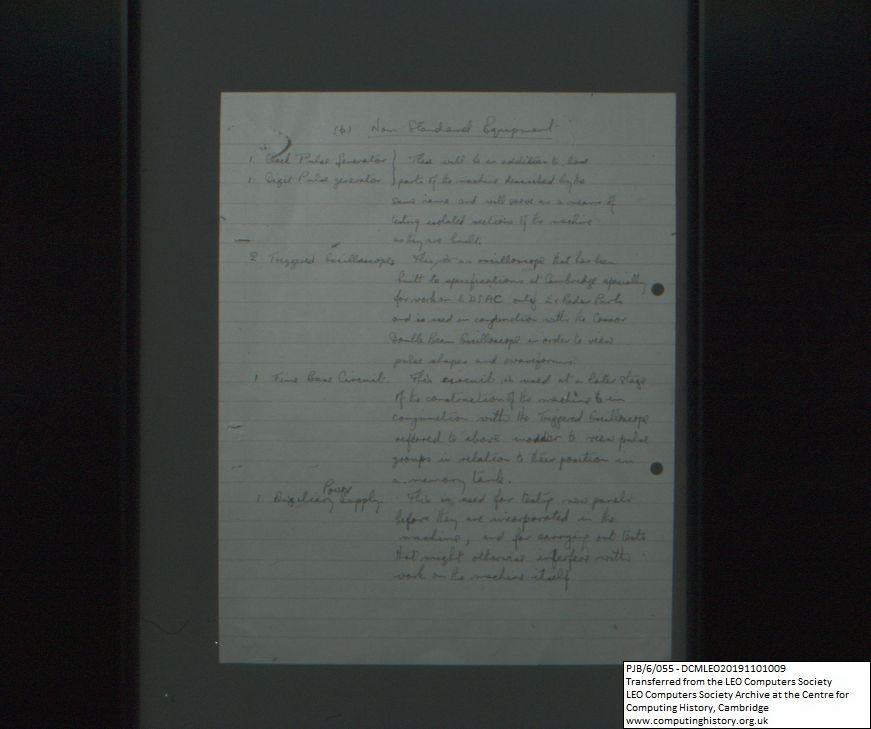 (b) Non Standard Equipment
1 Clock Pulse Generator } These will be in addition to those
1 Digit Pulse generator } parts of the machine described by the
same name and will serve as a means of
testing isolated sections of the machine
as they are built.
2 Triggered Oscilloscopes This is an oscilloscope that has been
built to specifications at Cambridge specially
for work on EDSAC only Ex Radar Parts
and is used in conjunction with the Cossor
Double Beam Oscilloscope in order to view
pulse shapes and waveforms.
1 Time Base Circuit. This circuit is used at a later stage
of the construction of the machine in
conjunction with the Triggered Oscilloscope
referred to above in order to view pulse
groups in relation to their position in
a memory tank.
1 Auxiliary Power Supply This is used for testing new panels
before they are incorporated in the
machine, and for carrying out tests
that might otherwise interfere with
work on the machine itself
PJB/6/055 - DCMLEO20191101009
Transferred from the LEO Computers Society
LEO Computers Society Archive at the Centre for
Computing History, Cambridge
www.computinghistory.org.uk